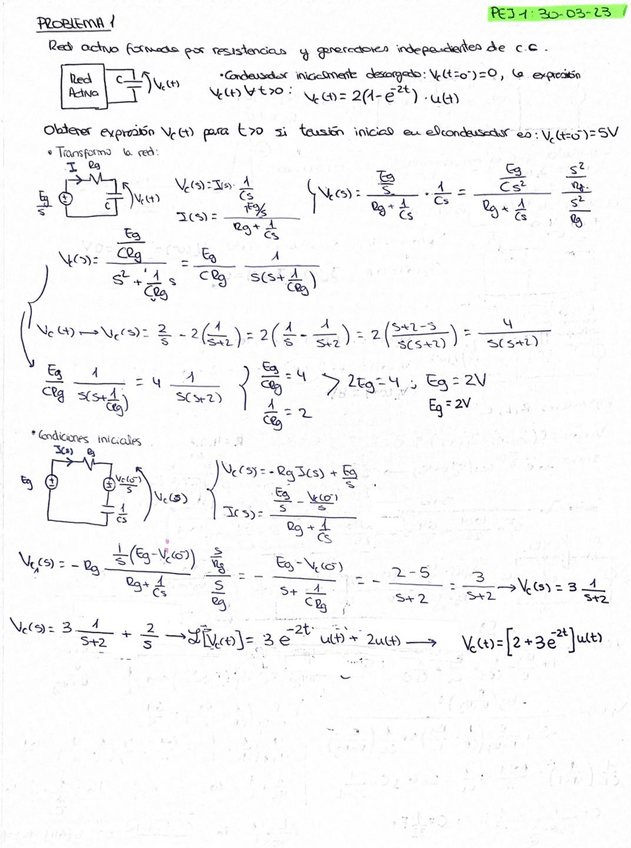 PEJ 1: 30-03-23
PROBLEMA 1
Red activa formada por resistencias y generadores independientes de c.c.
Red Activa C Vc(t)
• Condensador inicialmente descargado: Vc(t=0⁻)=0, la expresión
Vc(t) ∀ t>0: Vc(t)= 2(1-e^-2t)·u(t)
Obtener expresión Vc(t) para t>0 si tensión inicial en el condensador es: Vc(t=0⁻)=5V
• Transformo la red:
I Rg Eg/s C Vc(t)
Vc(s)=I(s)·1/Cs
I(s)= (Eg/s)/(Rg+1/Cs)
Vc(s)= (Eg/s)/(Rg+1/Cs) · 1/Cs = (Eg/Cs²)/(Rg+1/Cs) (s²/Rg)/(s²/Rg)
Vc(s)= (Eg/CRg)/(s²+(1/CRg)s) = Eg/CRg 1/(s(s+1/CRg))
Vc(t) → Vc(s)= 2/s - 2(1/(s+2)) = 2(1/s - 1/(s+2)) = 2((s+2-s)/(s(s+2))) = 4/(s(s+2))
Eg/CRg 1/(s(s+1/CRg)) = 4 1/(s(s+2)) { Eg/CRg = 4 1/CRg = 2 > 2Eg=4 ; Eg=2V
Eg=2V
• Condiciones iniciales
I(s) Rg Eg Vc(0⁻)/s 1/Cs Vc(s)
Vc(s)=-Rg I(s) + Eg/s
I(s)= (Eg/s - Vc(0⁻)/s)/(Rg+1/Cs)
Vc₁(s)= -Rg (1/s (Eg-Vc(0⁻)))/(Rg+1/Cs) (s/Rg)/(s/Rg) = - (Eg-Vc(0⁻))/(s+1/CRg) = - (2-5)/(s+2) = 3/(s+2) → Vc(s)= 3 1/(s+2)
Vc(s)= 3 1/(s+2) + 2/s → ℒ[Vc(t)]= 3e^-2t u(t) + 2u(t) → Vc(t)=[2+3e^-2t]u(t)